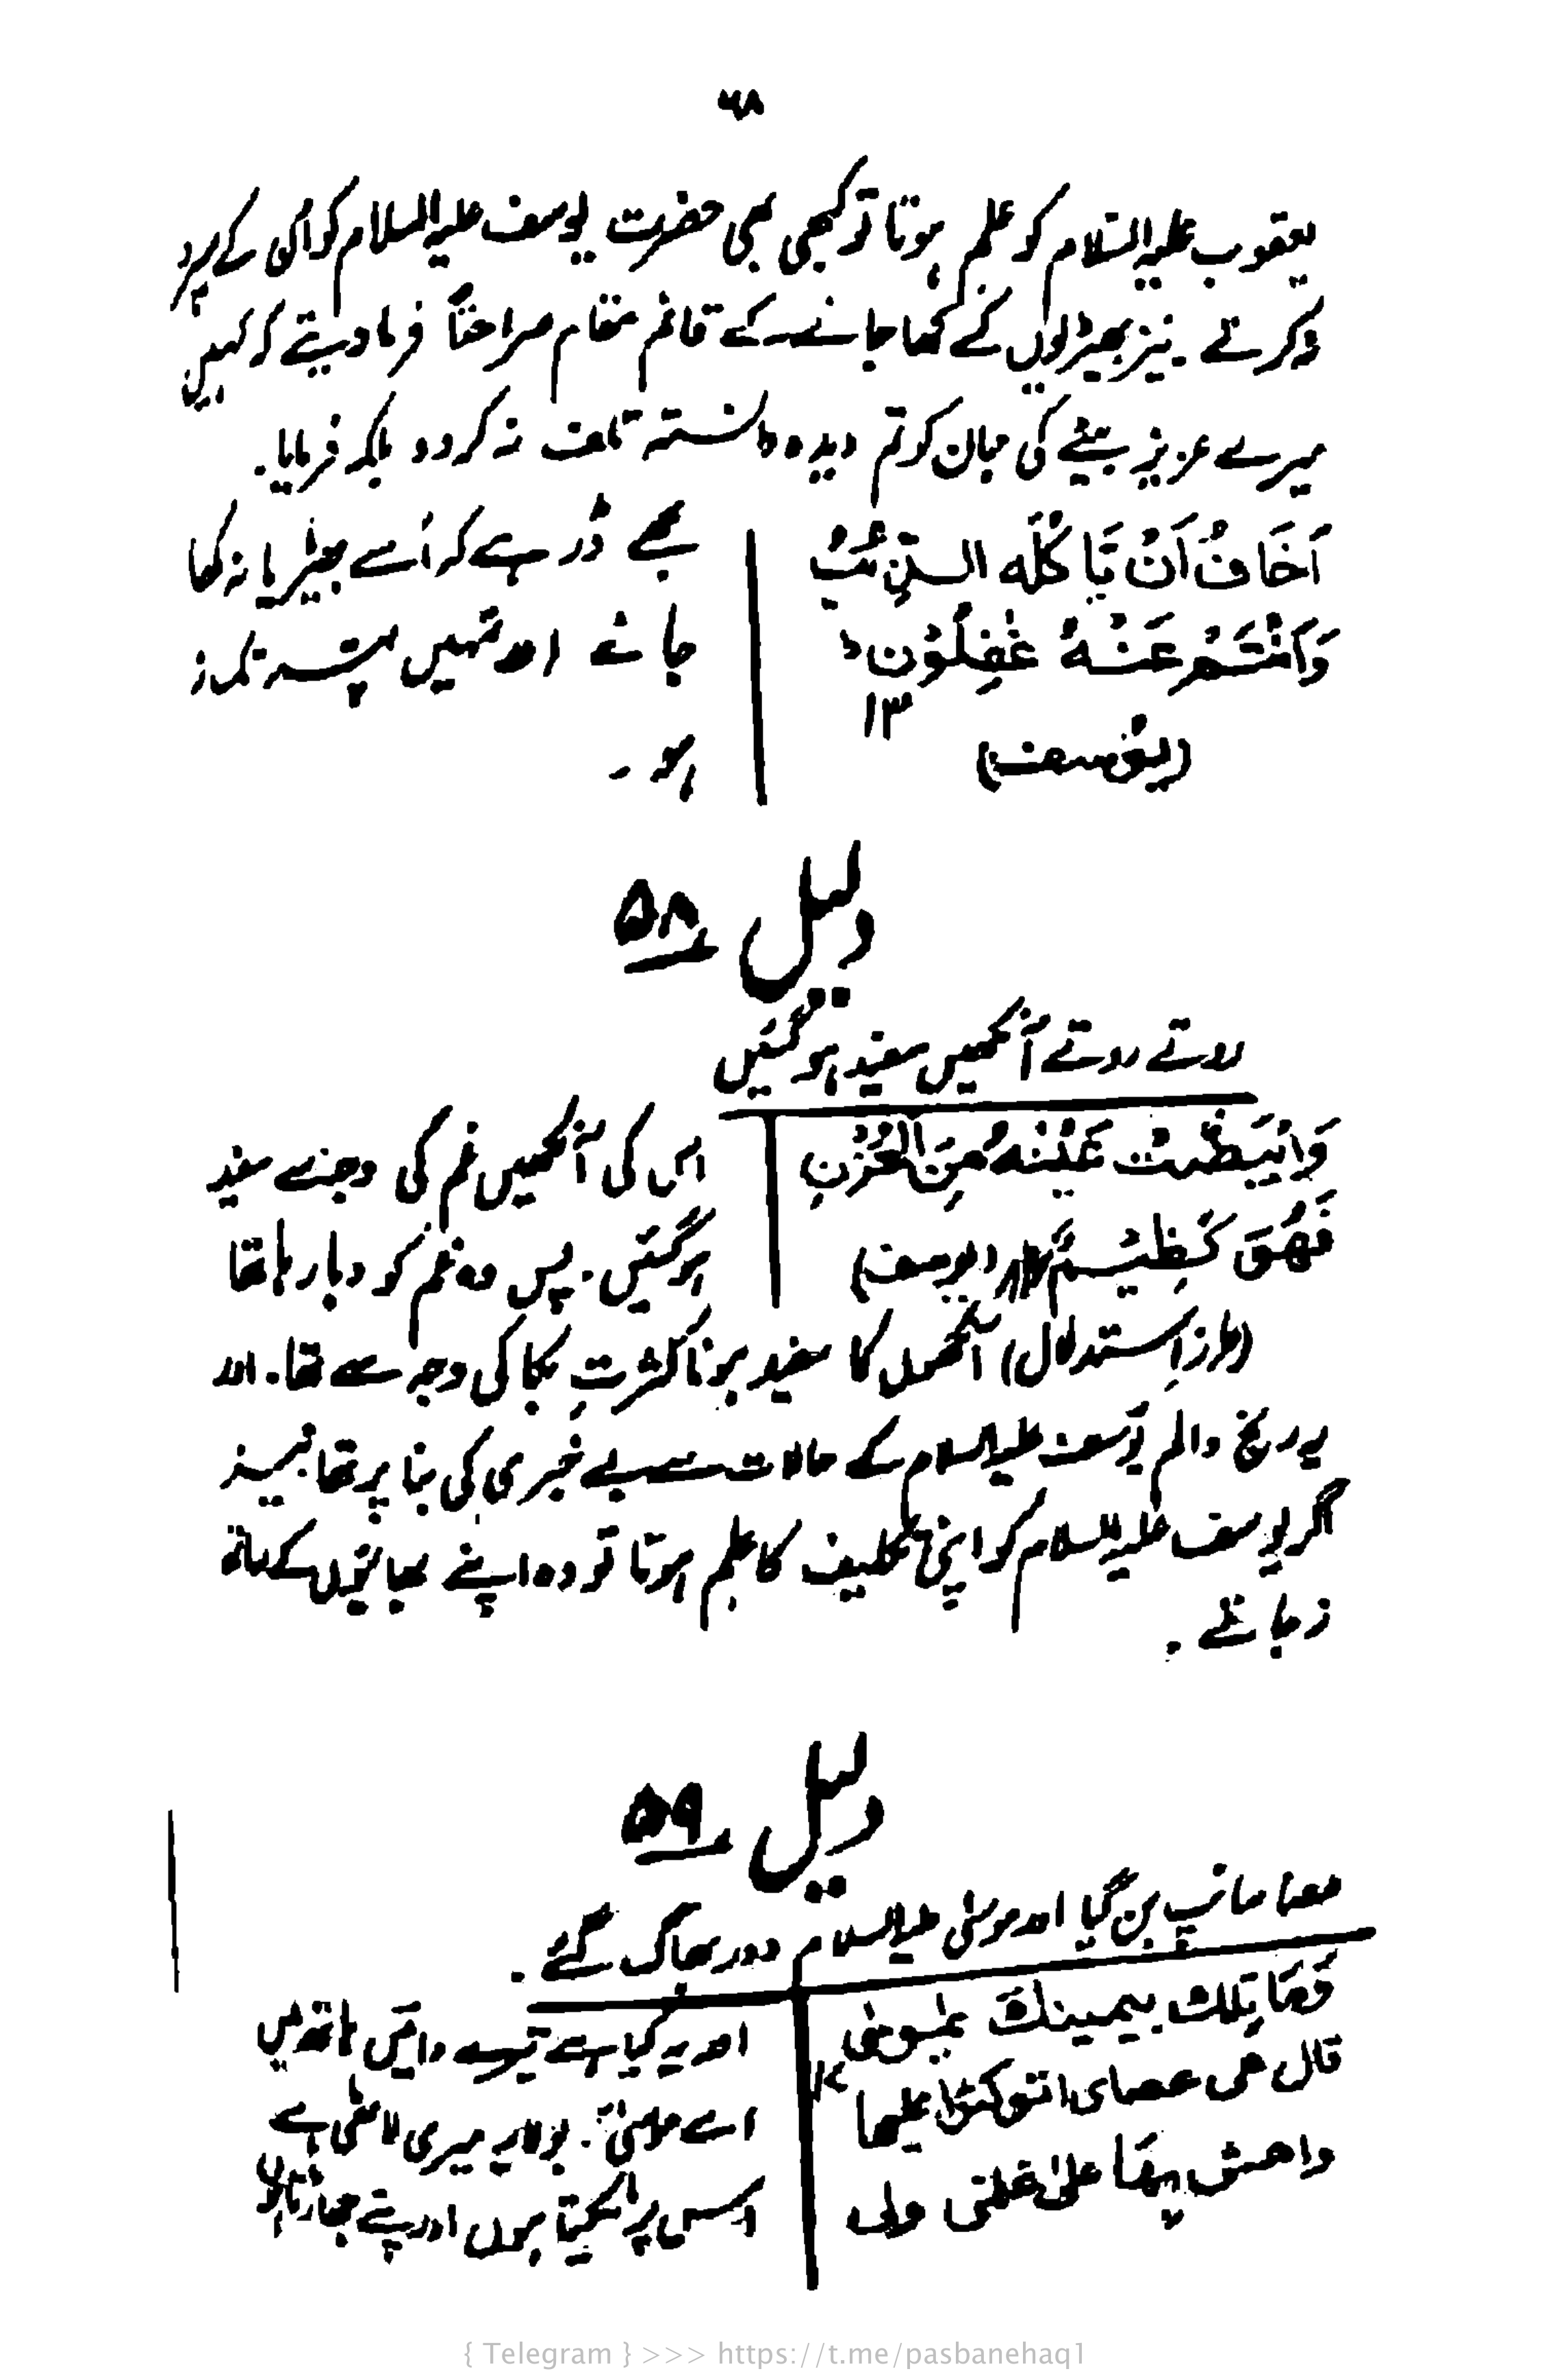 ۴۸
یعقوب علیہ السّلام کو علم ہوتا تو کبھی بھی حضرت یوسف علیہ السلام کو ان کے سپرد
نہ کرتے ۔ نیز بھیڑیوں کے کھا جانے کے قائم مقام صراحتاً فرما دیتے کہ کہیں
میرے عزیز بیٹے کی جان کو تم دیدہ دانستہ تلف نہ کر دو بلکہ فرمایا۔
اَخَافُ اَنْ يَّا كُلَه الذِّئبُ
وَاَنْتُمْ عَنْهُ غٰفِلُوْن
۱۳
(یوسف)
مجھے ڈر ہے کہ اُسے بھیڑیا نہ کھا
جائے اور تمہیں پتہ تک نہ
ہو ۔
دلیل ۵۸
روتے روتے آنکھیں سفید ہو گئیں
وَابْيَضَّتْ عَيْنٰهُ مِنَ الْحُزْنِ
فَهُوَ كَظِيْمٌ ۸۴ (یوسف)
اس کی آنکھیں غم کی وجہ سے سفید
ہو گئیں ۔ پس وہ غم کو دبا رہا تھا
(طرزِ استدلال) آنکھوں کا سفید ہونا کثرتِ بکا کی وجہ سے تھا۔ اور
یہ رنج والم یوسف علیہ السلام کے حالات سے بے خبری کی بنا پر تھا نیز
اگر یوسف علیہ السلام کو اپنی تکلیف کا علم ہوتا تو وہ اپنے بھائیوں کے ساتھ
نہ جاتے ۔
دلیل ۵۹
عصا سانپ بن گیا اور موسیٰ علیہ السلام دور بھاگ گئے ۔
وَمَا تِلك بيمينكَ يٰموسٰى
قال هى عصاى اتوكئوا عليها
واهش بها علىٰ غنمى ولى
اور یہ کیا ہے تیرے دائیں ہاتھ میں
اے موسیٰ ؑ ۔ بولا یہ میری لاٹھی ہے
اس پر ٹیکتا ہوں اور پتے جھاڑتا ہوں
{ Telegram } >>> https://t.me/pasbanehaq1